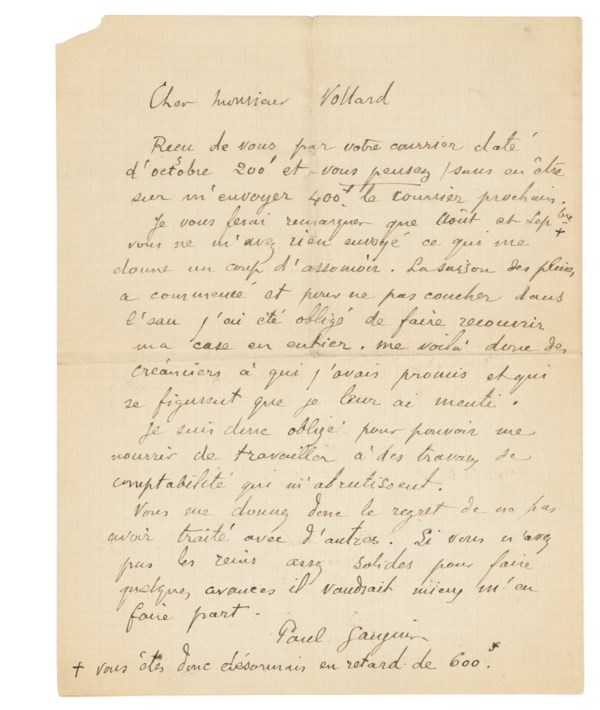 Cher monsieur Vollard
Reçu de vous par votre courrier daté
d'octobre 200f et vous pensez / sans en être
sur m'envoyer 400f. le courrier prochain.
Je vous ferai remarquer que Août et Sepbre +
vous ne m'avez rien envoyé ce qui me
donne un coup d'assomoir. La saison des pluies
a commencé et pour ne pas coucher dans
l'eau j'ai été obligé de faire recouvrir
ma case en entier. me voilà donc des
créanciers à qui j'avais promis et qui
se figurent que je leur ai menti.
Je suis donc obligé pour pouvoir me
nourrir de travailler à des travaux de
comptabilité qui m'abrutissent.
Vous me donnez donc le regret de ne pas
avoir traité avec d'autres. Si vous n'avez
pas les reins assez solides pour faire
quelques avances il vaudrait mieux m'en
faire part.
Paul Gauguin
+ vous êtes donc désormais en retard de 600f.